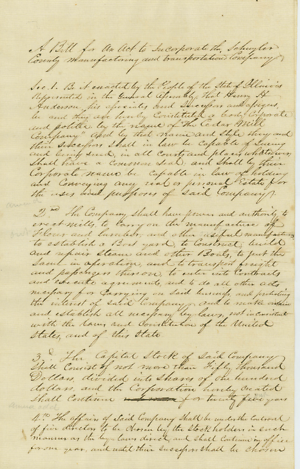 A Bill for an Act to Incorporate the Schuyler
County manufacturing and transportation Company
Sec. 1. Be it enacted by the People of the State of Illinois
represented in the General Assembly, that Henry
Anderson, his associates and successors and assigns,
be and they are hereby Constituted a body Corporate
and politic by the name of the Mill
Company, and by that name and style they and
their successors shall in law be capable of suing
and being sued in all Courts and places whatsoever
Shall have a common seal and Shall by their
Corporate name be capable in law of holding
and Conveying any real or personal Estate for
the uses and purposes of Said Company
2nd The Company Shall have power and authority to
erect mills to carry on the manufacture of
flour and lumber and other useful manufactures
to establish a Boat yard to Construct, build
and repair Steam and other Boats, to put the
Same in operation, and to transport freight
and passengers thereon to enter into Contracts
and execute agreements, and to do all other acts
necessary for Carrying on said business and promoting
the interest of said Company, and to make
and establish all necessary by laws, not inconsistent
with the laws and Constitution of the United
States, and of this State
3d The Capital Stock of Said Company
Shall Consist of not more than Fifty thousand
Dollars divided into Shares of One hundred
dollars and the Corporation hereby Created
Shall Continue for twenty five years
4th The affairs of Said Company Shall be under the Control
of five directors to be chosen by the Stockholders in such
manner as the by-laws direct and Shall Continue in office
from year and until their successors Shall be chosen